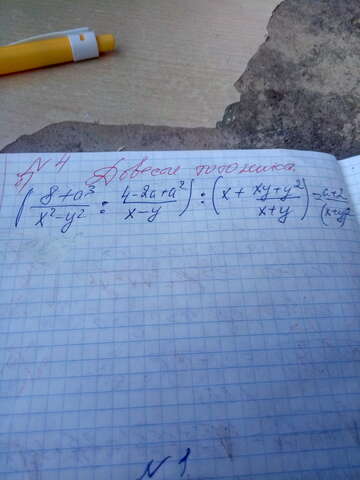 № 4
б) Довести тотожність
( 8+a³ / x²-y² : 4-2a+a² / x-y ) : ( x + xy+y² / x+y ) = a+2 / (x+y)²
№ 1